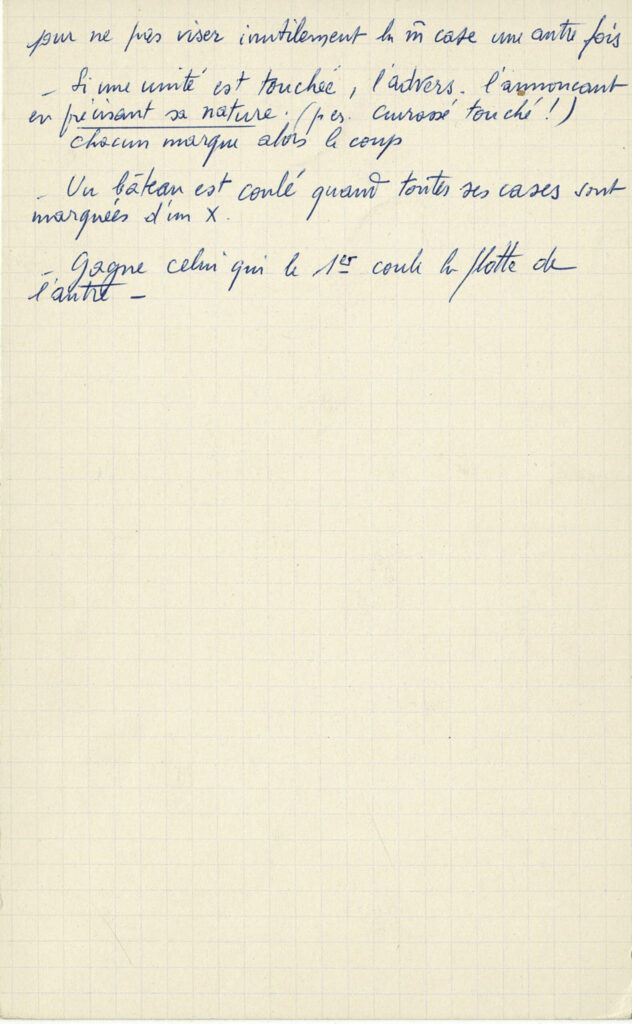 pour ne pas viser inutilement la m̄ case une autre fois
_ Si une unité est touchée, l'advers. l'annonçant
en précisant sa nature. (p ex. Cuirassé touché !)
chacun marque alors le coup
_ Un bâteau est coulé quand toutes ses cases sont
marquées d'un X.
_ Gagne celui qui le 1er coule la flotte de
l'autre _